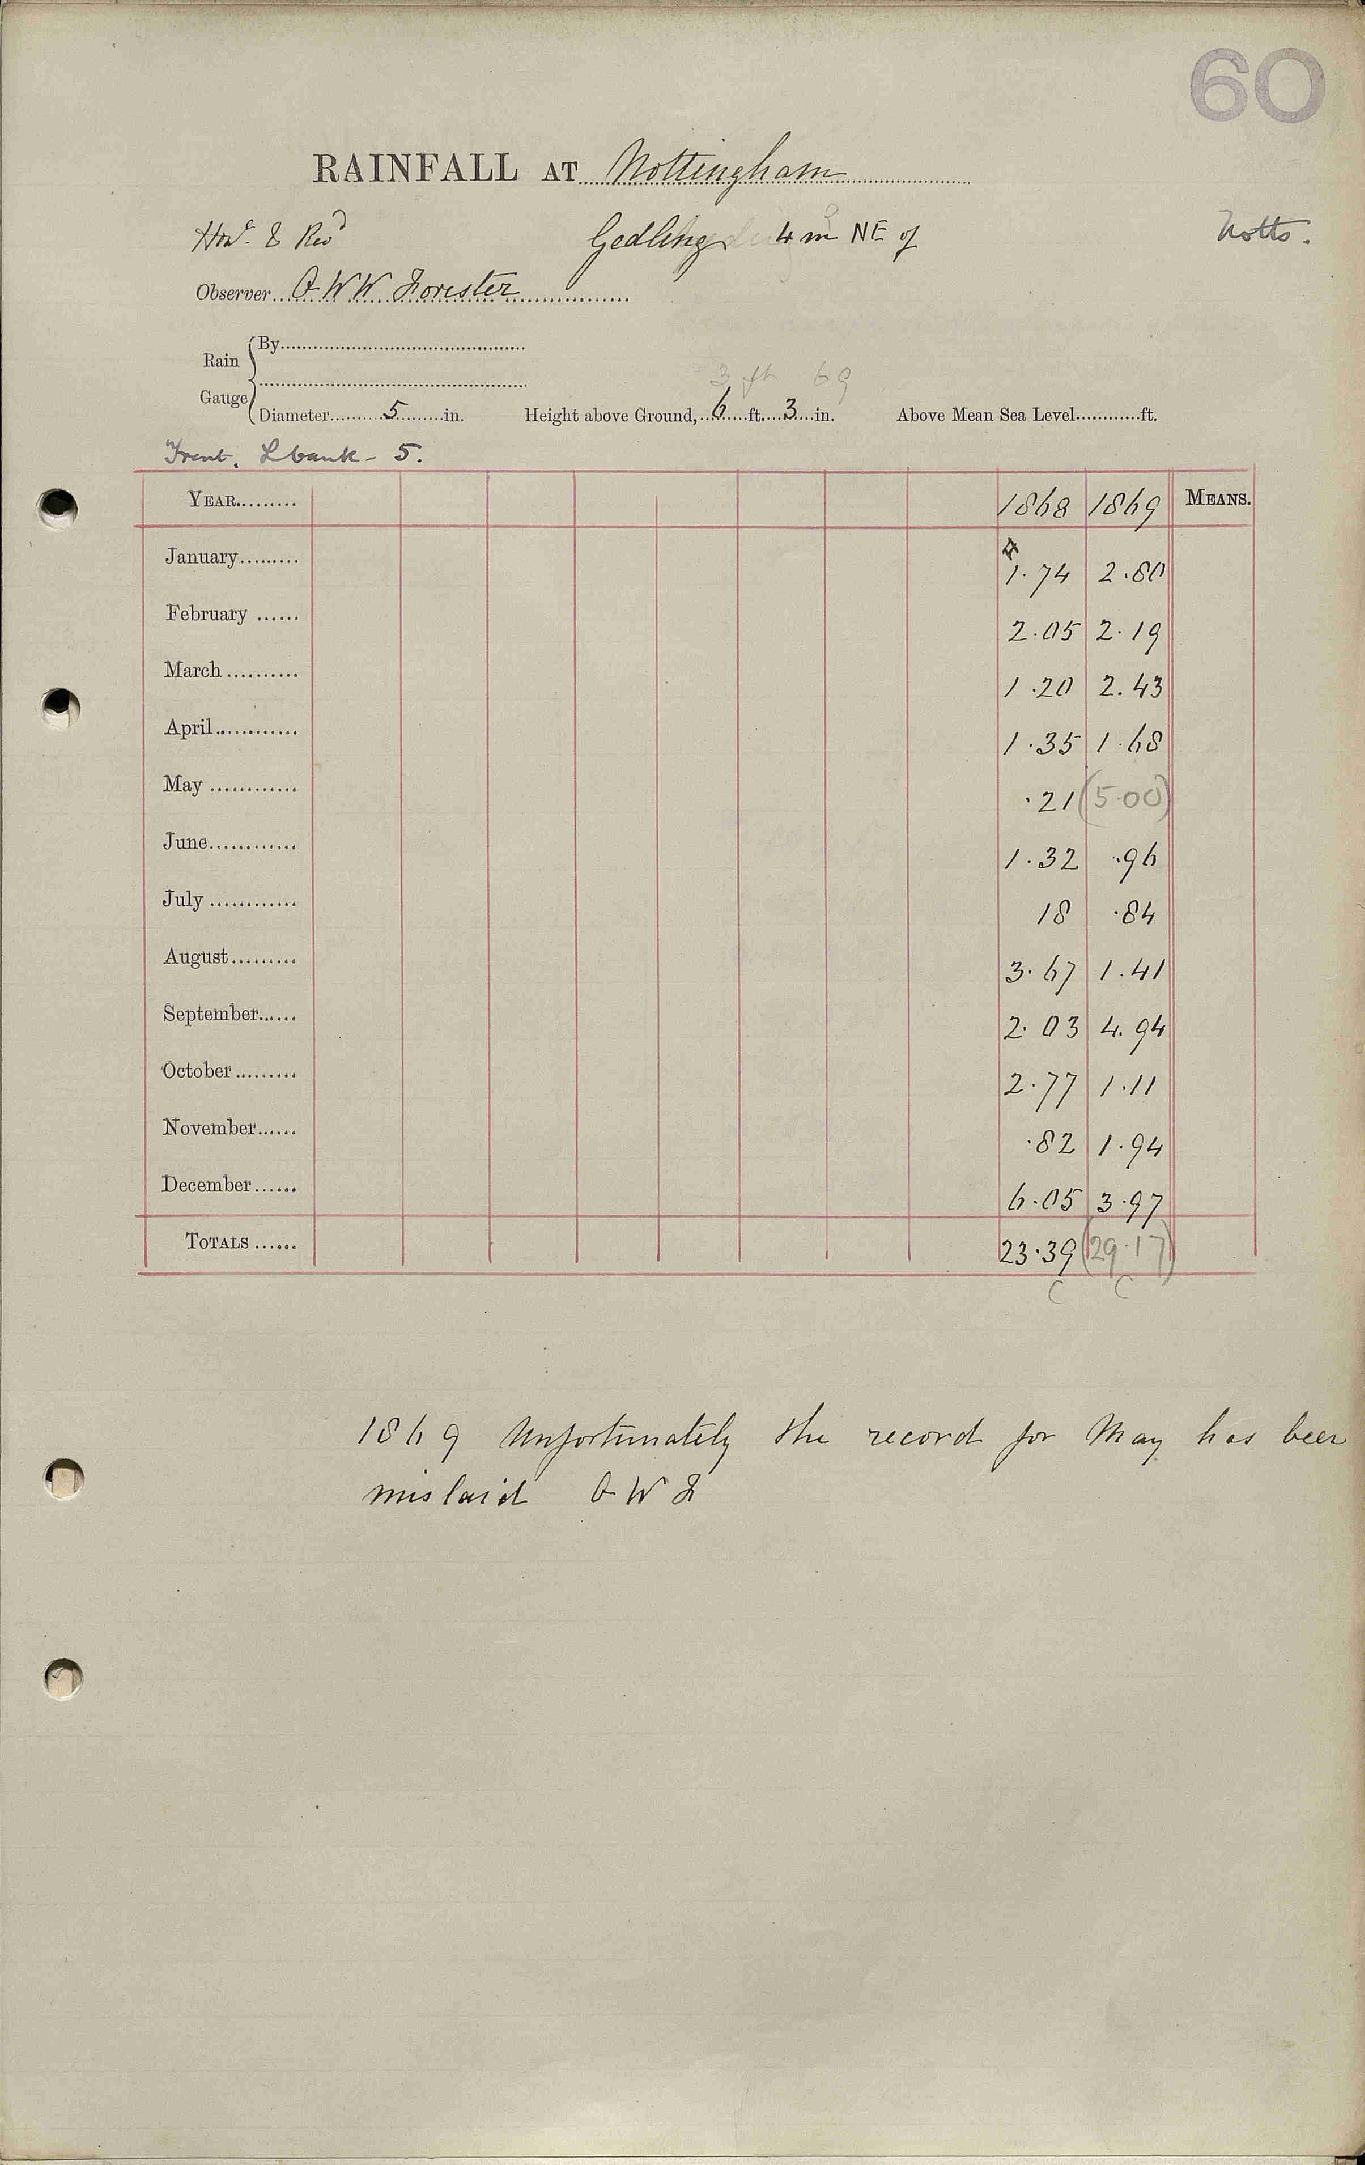 60
RAINFALL AT Nottingham
Gedling 4 m NE of
Notts.
Honᵉ & Revᵈ
Observer O W W Forester
Rain Gauge
By
3 ft 69
Diameter 5 in. Height above Ground, 6 ft. 3 in. Above Mean Sea Level ft.
Trent. L bank - 5.
YEAR 1868 1869 MEANS.
January 1.74 2.80
February 2.05 2.19
March 1.20 2.43
April 1.35 1.68
May .21 (5.00)
June 1.32 .96
July 18 .84
August 3.67 1.41
September 2.03 4.94
October 2.77 1.11
November .82 1.94
December 6.05 3.97
TOTALS 23.39 (29.17)
C C
1869 Unfortunately the record for May has been
mislaid O W F